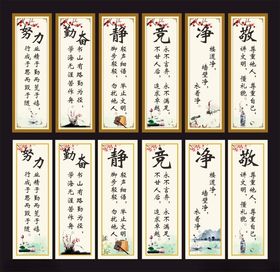 努力
业精于勤而荒于嬉
行成于思而毁于随
勤奋
书山有路勤为径
学海无涯苦作舟
静
轻声细语，举止文明
脚步轻轻，勿扰他人。
竞
永不言弃，永不满足
不甘人后，追求卓越。
净
楼道净，
墙壁净，
敬
尊重他人，尊重自己，
讲文明，懂礼貌。
努力
业精于勤而荒于嬉
行成于思而毁于随
勤奋
书山有路勤为径
学海无涯苦作舟
静
轻声细语，举止文明
脚步轻轻，勿扰他人。
竞
永不言弃，永不满足
不甘人后，追求卓越。
净
楼道净，
墙壁净，
敬
尊重他人，尊重自己，
讲文明，懂礼貌。